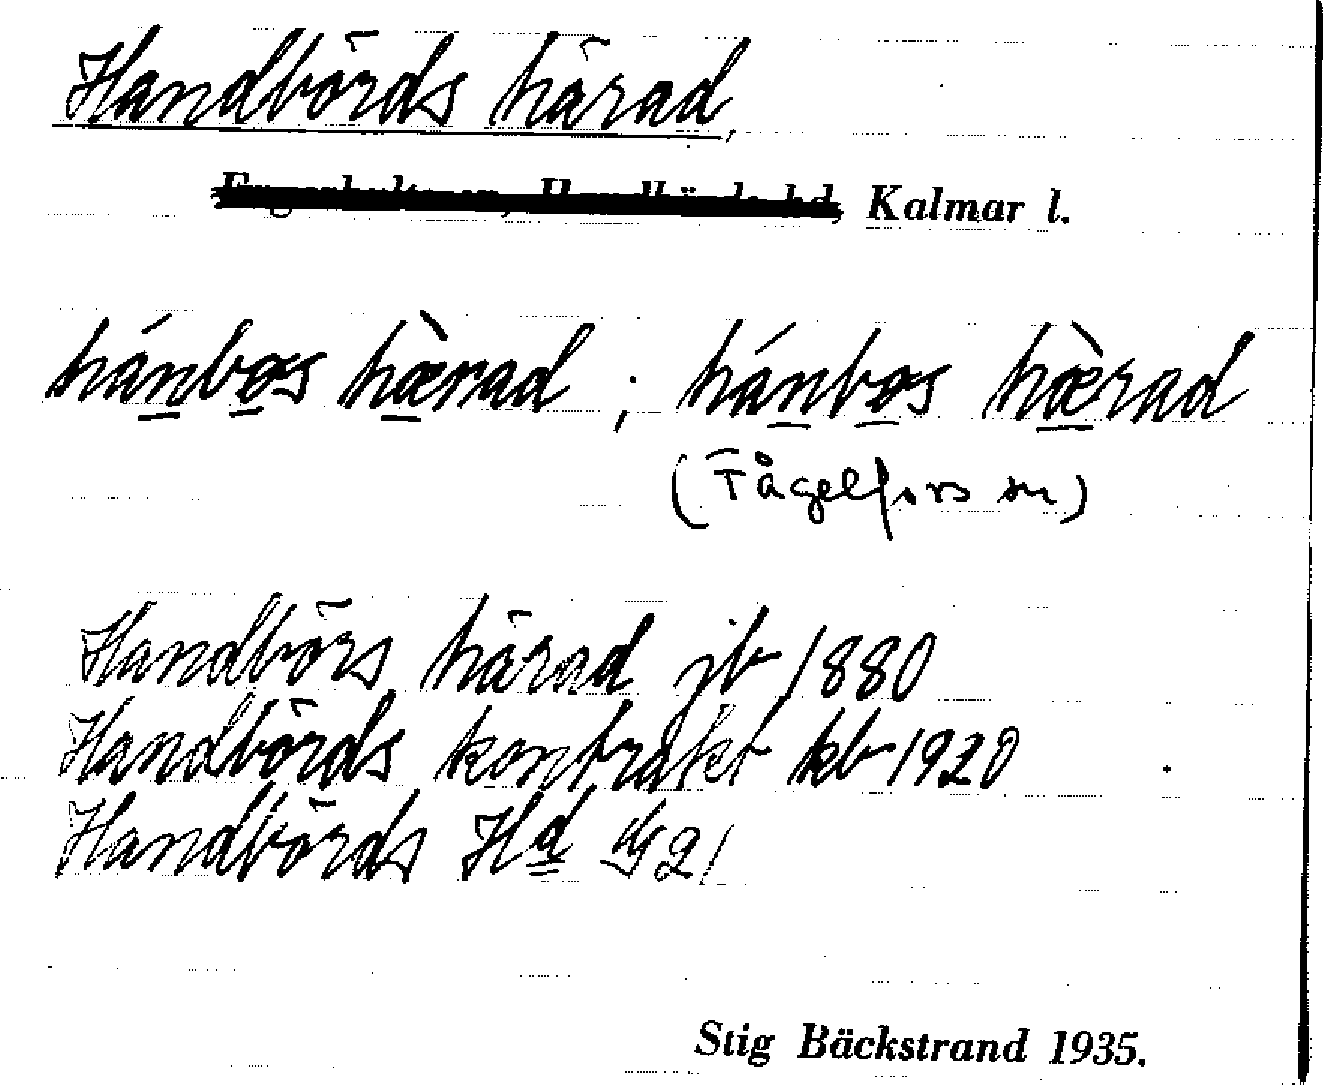 Handbörds härad,
Kalmar l.
hánbos hæ̀rad ; hánbos hæ̀rad
(Fågelfors sn)
Handbörs härad jb 1880
Handbörds kontrakt kb 1920
Handbörds Hd 21
Stig Bäckstrand 1935.